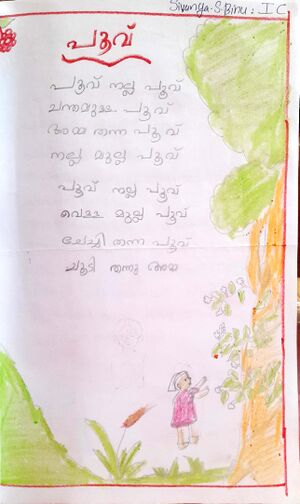 Sivanya.S.Binu : I C
പൂവ്
പൂവ് നല്ല പൂവ്
ചന്തമുള്ള പൂവ്
അമ്മ തന്ന പൂവ്
നല്ല മുല്ല പൂവ്
പൂവ് നല്ല പൂവ്
വെള്ള മുല്ല പൂവ്
ചേച്ചി തന്ന പൂവ്
ചൂടി തന്നു അമ്മ